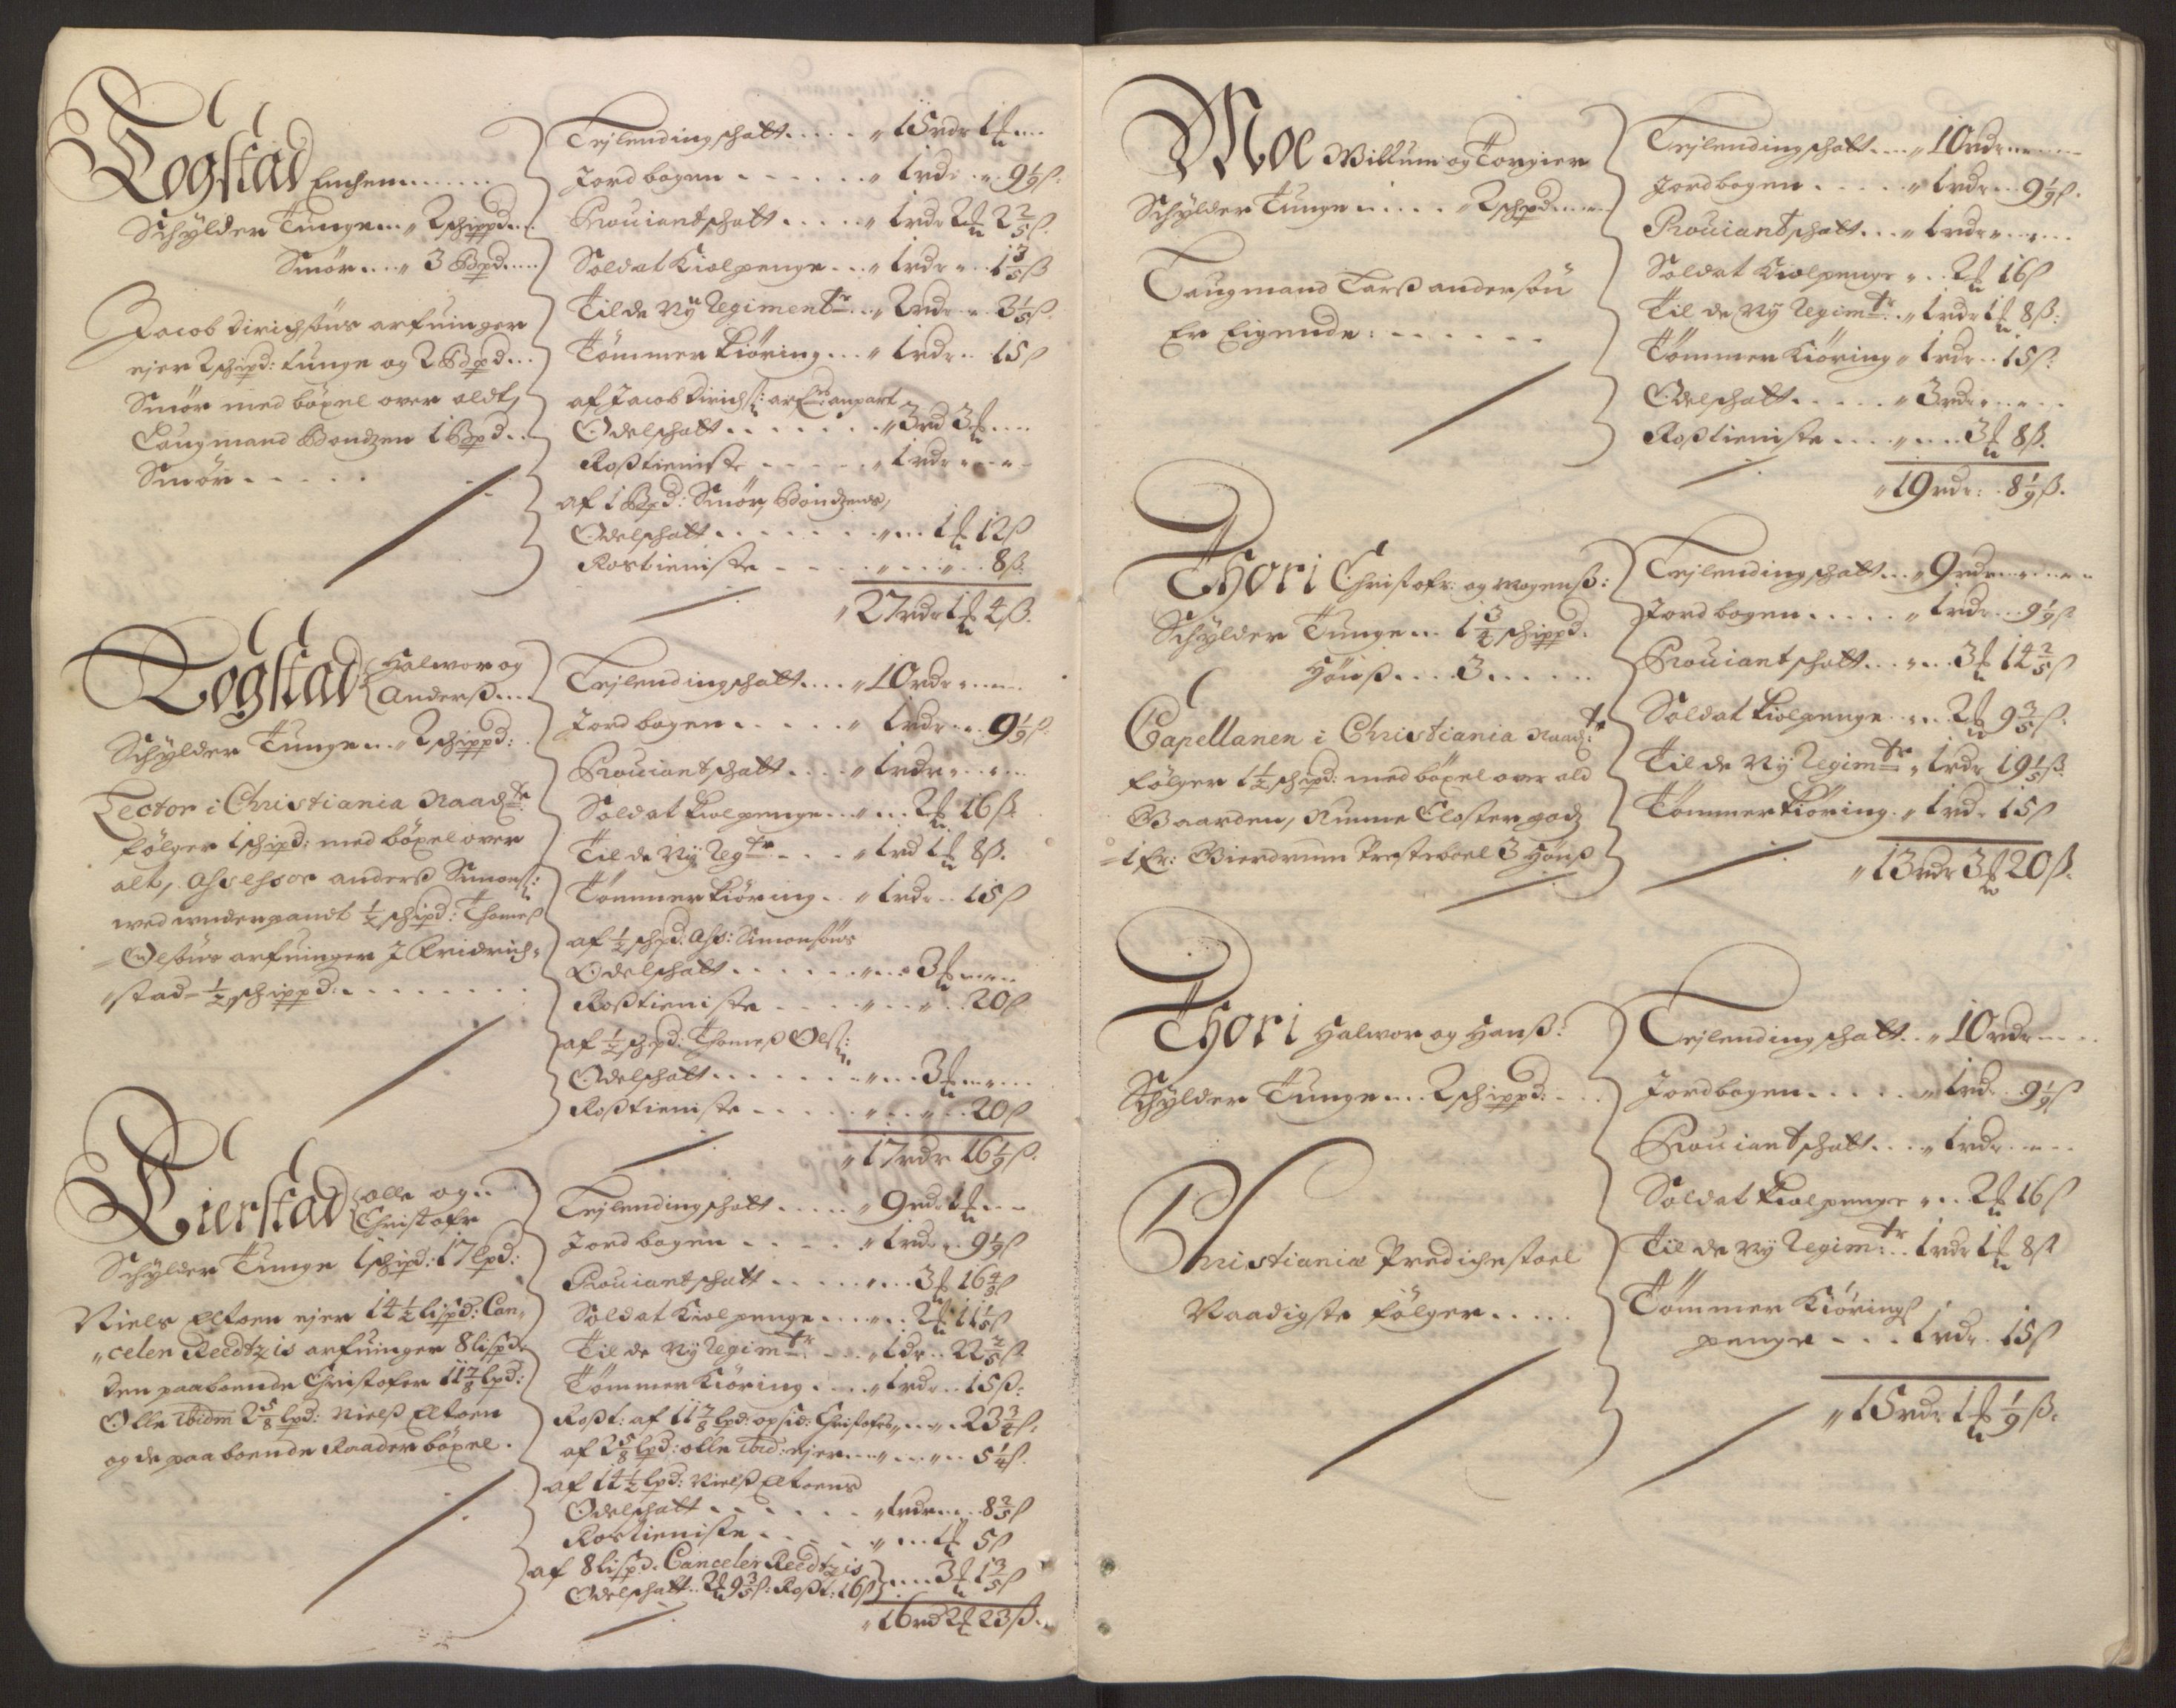 Togstad Enchen.......
Schÿlder Tunge.. 2 schippd...
Smör.... 3 Bdpd.....
Jacob Dirichsöns arfuinger
ejer 2 schipd: tunge og 2 Bdpd...
Smör med böxel over aldt,
Laugmand Bondzen 1 Bdpd..
Smör.....
Lejlendingschatt..... 15 rdr 1 ß...
Jordbogen...... 1 rdr.. 9 1/9 ß:
Prouiantschatt..... 1 rdr 2 2 2/5 ß.
Soldat Kiolpenge... 1 rdr.. 1 3/5 ß
Til de Nÿ Regimentr... 2 rdr.. 3 1/5 ß.
Tömmer Kiöring... 1 rdr.. 15 ß
af Jacob Dirichs: arf: anpart
Odelschatt....... 3 rd 3...
Roßtieniste..... 1 rdr...
af 1 Bdpd: Smör, Bondzens,
Odelschatt....... 1 12 ß
Rostieniste...... 8 ß:
27 rdr 1 4 ß.
Togstad Halvor og
Anderß....
Schÿlder Tunge... 2 schippd:
Lector i Christiania Naadr.
følger 1 schipd: med böxel over
alt, Assessor Anderß Simons:
wed underpandt 1/2 schipd: Thomeß
Olsöns arfuinger I Fridrich-
stad 1/2 schippd:.......
Lejlendingschatt.... 10 rdr....
Jordbogen..... 1 rdr.. 9 1/9 ß.
Prouiantschatt.... 1 rdr....
Soldat Kiolpenge.... 2 16 ß
Til de Nÿ Regtr... 1 rd 1 8 ß.
Tömmer Kiöring... 1 rdr.. 15 ß
af 1/2 schpd: Ass: Simonsöns
Odelschatt....... 3....
Roßtieniste...... 20 ß
af 1/2 schpd: Thomeß Ols:
Odelschatt....... 3....
Roßtieniste...... 20 ß
17 rdr 16 1/9 ß.
Tierstad Olle og..
Christofr
Schÿlder Tunge 1 schipd: 17 lpd:
Niels Eltoen ejer 14 1/2 lispd: Can-
celer Reedtzis arfuinger 8 lispd.
Den paaboende Christofer 11 7/8 lpd:
Olle ibidm 2 5/8 lpd: Nielß Eltoen
og de paaboende Raader böxel.
Lejlendingschatt..... 9 rdr 1...
Jordbogen..... 1 rdr.. 9 1/9 ß
Prouiantschatt...... 3 16 4/5 ß
Soldat Kiolpenge..... 2 11 1/5 ß
Til de Nÿ Regimtr.... 1 rdr.. 22 2/5 ß
Tömmer Kiöring.... 1 rdr.. 15 ß:
Roßt: af 11 7/8 lpd: opsid: Christofers.... 23 3/4 ß:
af 2 5/8 lpd: Olle ibid: ejer..... 5 1/4 ß.
af 14 1/2 lpd: Nielß Eltoens
Odelschatt...... 1 rdr... 8 2/5 ß
Rostieniste...... 1 5 ß
af 8 lispd. Canceler Reedtzis
Odelschatt. 2 9 3/5 ß: Roßt: 16 ß .... 3 1 3/5 ß
16 rd 2 23 ß.
Moe Willum og Torgier
Schÿlder Tunge..... 2 schpd.....
Laugmand Larß Andersön
Er Eigende:......
Lejlendingschatt.... 10 rdr......
Jordbogen..... 1 rdr.. 9 1/9 ß.
Prouiantschatt... 1 rdr.....
Soldat Kiolpenge... 2 16 ß
Til de Nÿ Regimtr. 1 rdr 1 8 ß:
Tömmer Kiöring 1 rdr.. 15 ß:
Odelschatt..... 3 rdr.....
Roßtieniste....... 3 8 ß.
19 rdr: 8 1/9 ß.
Thori Christofr: og Mogenß:
Schÿlder Tunge.. 1 3/4 schippd.
Hönß.... 3......
Capellanen i Christiania Naadr:
følger 1 1/2 schpd: med böxel over ald
Gaarden, Nunne Closter godz
1 fr: Gierdrum Presteboel 3 Hönß
Lejlendingschatt... 9 rdr......
Jordbogen..... 1 rdr.. 9 1/9 ß
Prouiantschatt..... 3 14 2/5 ß
Soldat Kiolpenge... 2 9 3/5 ß.
Til de Nÿ Regimtr 1 rdr 19 1/5 ß.
Tömmer Kiöring. 1 rdr. 15 ß
13 rdr 3 20 ß.
Thori Halvor og Hanß:
Schÿlder Tunge... 2 schippd:...
Christiania Predichestoel
Naadigste følger.....
Lejlendingschatt.. 10 rdr....
Jordbogen..... 1 rdr. 9 1/9 ß
Prouiantschatt... 1 rdr....
Soldat Kiolpenge... 2 16 ß
Til de Nÿ Regimtr.. 1 rdr 1 8 ß
Tömmer Kiörings
penge.... 1 rdr. 15 ß
15 rdr 1 1/9 ß: